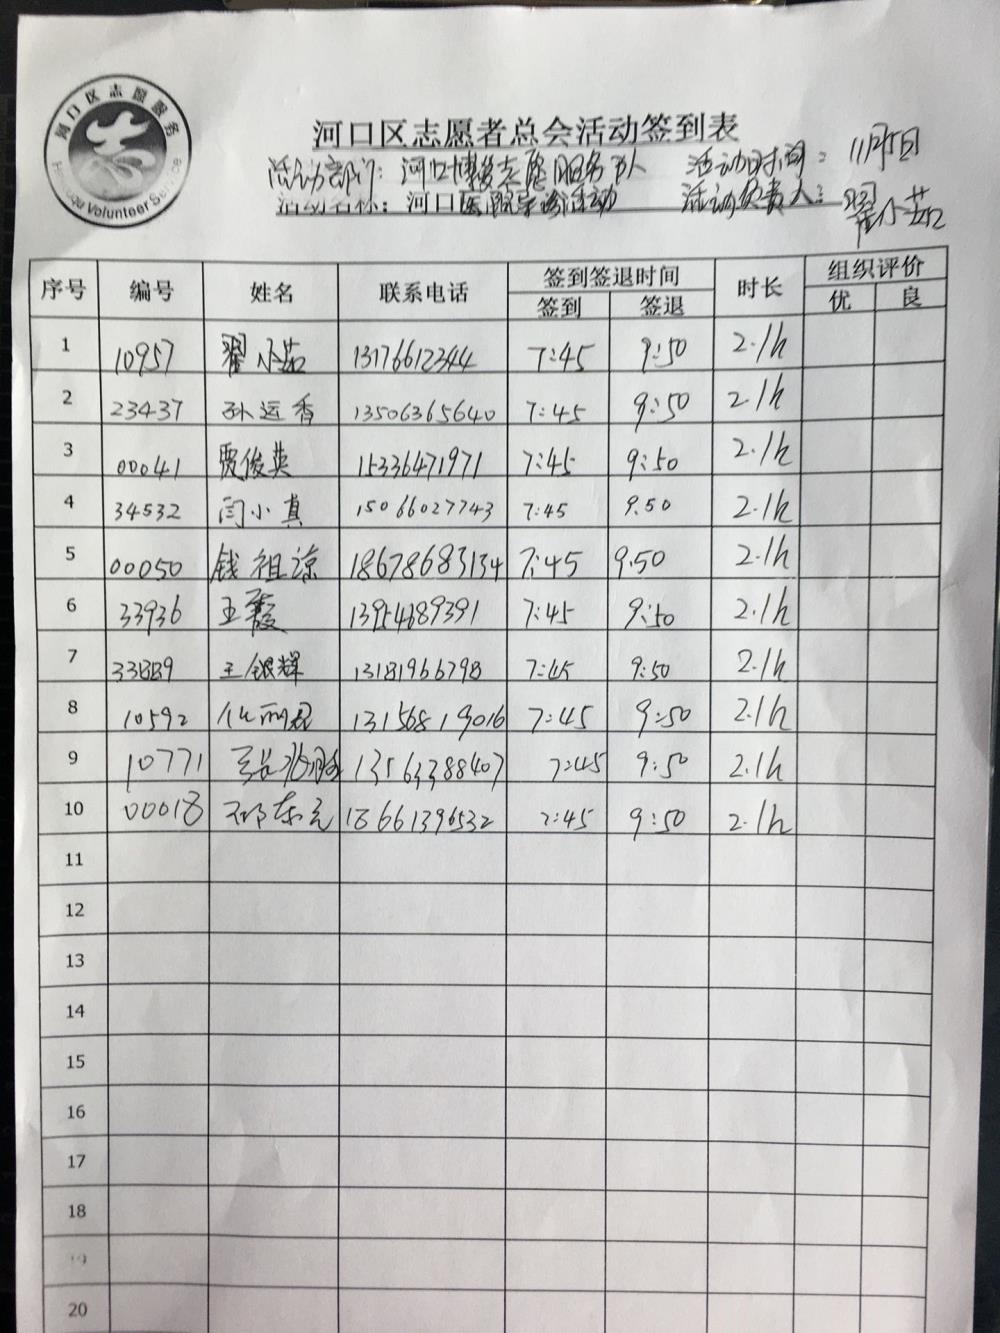 河口区志愿服务
Volunteer Service
河口区志愿者总会活动签到表
活动部门：河口博爱志愿服务队 活动时间：11月5日
活动名称：河口医院导诊活动 活动负责人：翟小茹
序号 编号 姓名 联系电话 签到签退时间 时长 组织评价
签到 签退 优 良
1 10957 翟小茹 13176612344 7:45 9:50 2.1h
2 23437 孙运香 13506365640 7:45 9:50 2.1h
3 00041 贾俊英 15336471971 7:45 9:50 2.1h
4 34532 闫小真 15066027743 7:45 9.50 2.1h
5 00050 钱祖谅 18678683134 7:45 9:50 2.1h
6 33936 王霞 13954689391 7:45 9:50 2.1h
7 王银辉 13181966798 7:45 9:50 2.1h
8 10592 13156819016 7:45 9:50 2.1h
9 10771 13563388407 7:45 9:50 2.1h
10 00018 邓东元 18661396532 7:45 9:50 2.1h
11
12
13
14
15
16
17
18
19
20